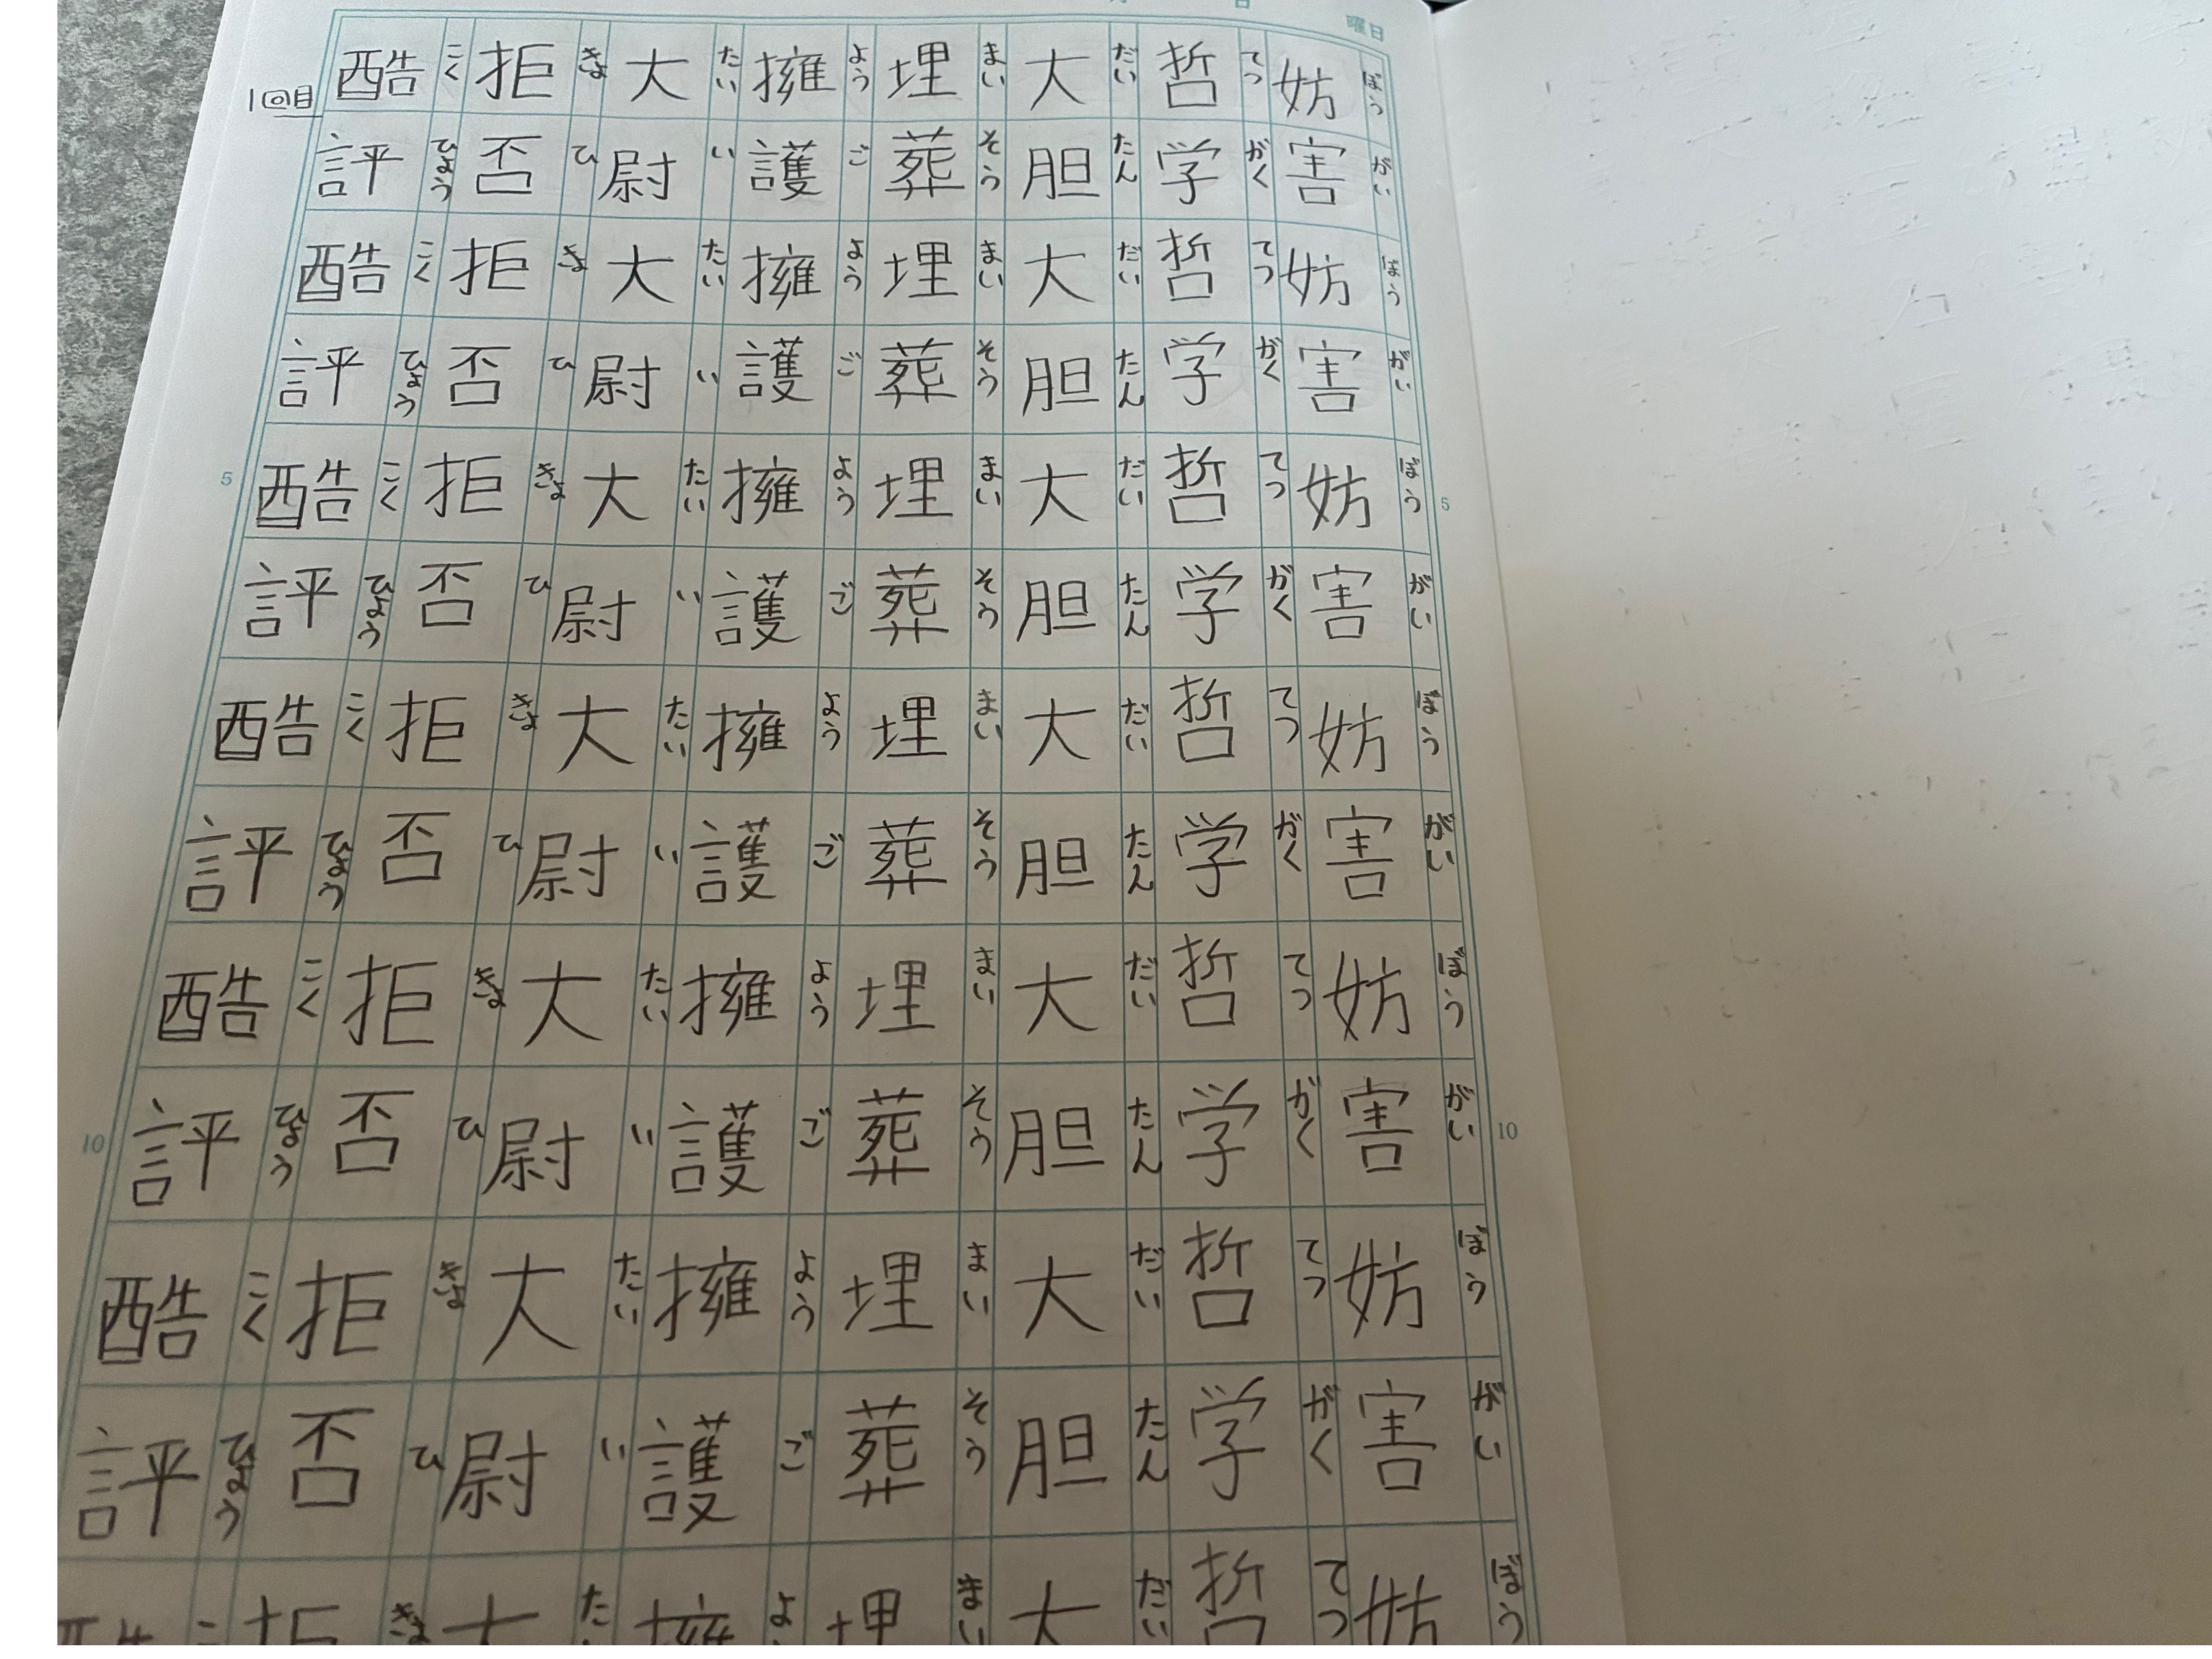 日 曜日
ぼうがいぼうがいぼうがいぼうがいぼうがいぼうがいぼう
妨害妨害妨害妨害妨害妨害妨
てつがくてつがくてつがくてつがくてつがくてつがくてつ
哲学哲学哲学哲学哲学哲学哲
だいたんだいたんだいたんだいたんだいたんだいたんだい
大胆大胆大胆大胆大胆大胆大
まいそうまいそうまいそうまいそうまいそうまいそうまい
埋葬埋葬埋葬埋葬埋葬埋葬埋
ようごようごようごようごようごようごよ
擁護擁護擁護擁護擁護擁護擁
たいいたいいたいいたいいたいいたいいた
大尉大尉大尉大尉大尉大尉大
きょひきょひきょひきょひきょひきょひきょ
拒否拒否拒否拒否拒否拒否拒
こくひょうこくひょうこくひょうこくひょうこくひょうこくひょう
酷評酷評酷評酷評酷評酷評
1回目
5
10
5
10